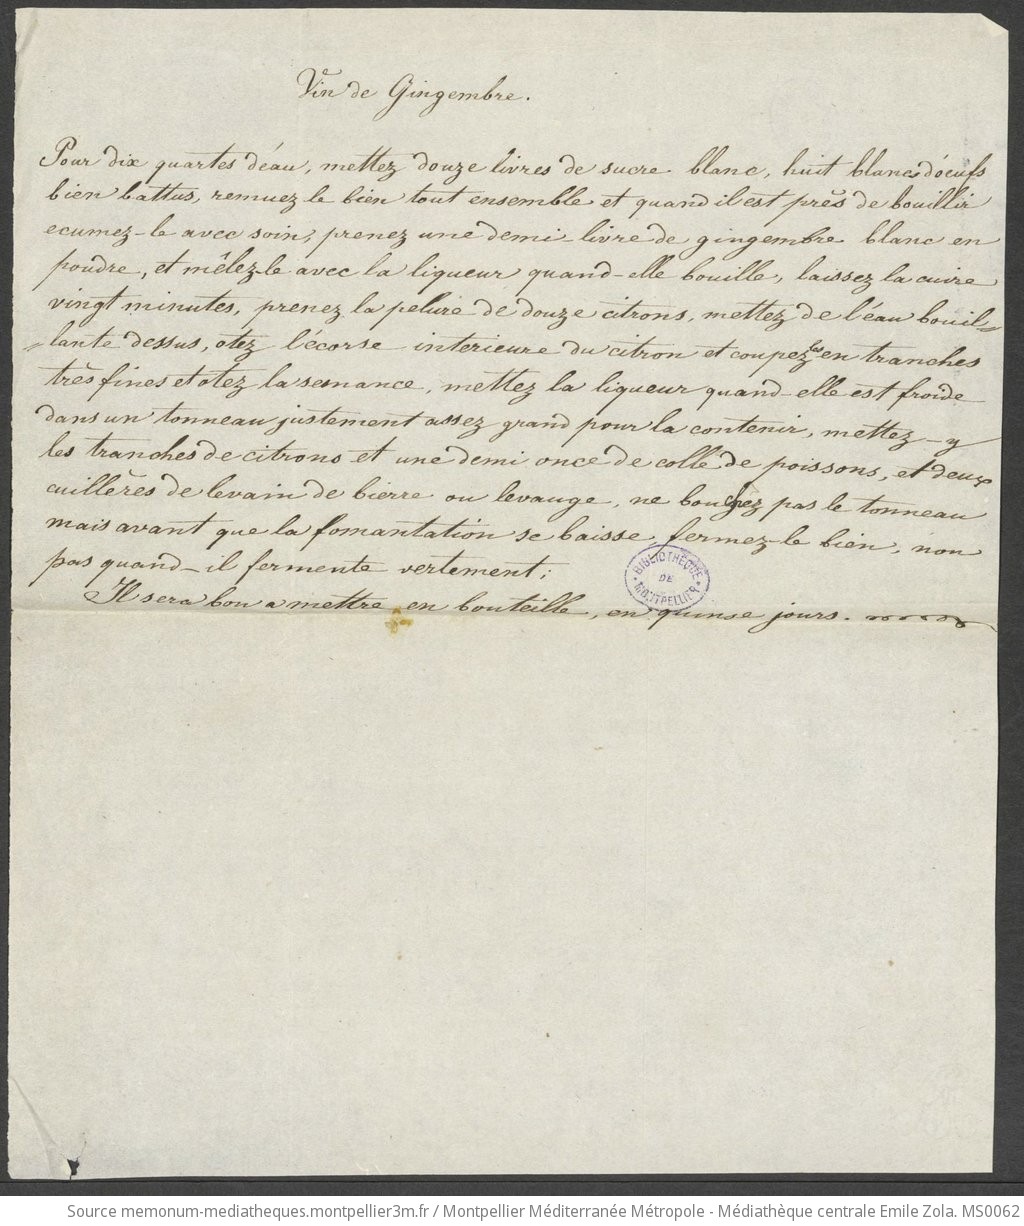 Vin de Gingembre.
Pour dix quartes d'éau, mettez douze livres de sucre blanc, huit blancs d'oeufs
bien battus, remuez le bien tout ensemble et quand il est près de bouillir
ecumez-le avec soin, prenez une demi-livre de gingembre blanc en
poudre, et mêlez-le avec la liqueur quand-elle bouille, laissez la cuire
vingt minutes, prenez la pelure de douze citrons, mettez de l'éau bouil=
=lante dessus, otez l'écorse interieure du citron et coupez les en tranches
très fines et otez la semance, mettez la liqueur quand-elle est froide
dans un tonneau justement assez grand pour la contenir, mettez-y
les tranches de citrons et une demi once de colle de poissons, et deux
cuillères de levain de bierre ou levauge, ne bouchez pas le tonneau
mais avant que la fomantation se baisse, fermez-le bien, non
pas quand-il fermente vertement;
Il sera bon a mettre en bouteille, en quinse jours.
BIBLIOTHÈQUE
DE
MONTPELLIER
Source memonum-mediatheques.montpellier3m.fr / Montpellier Méditerranée Métropole - Médiathèque centrale Emile Zola. MS0062